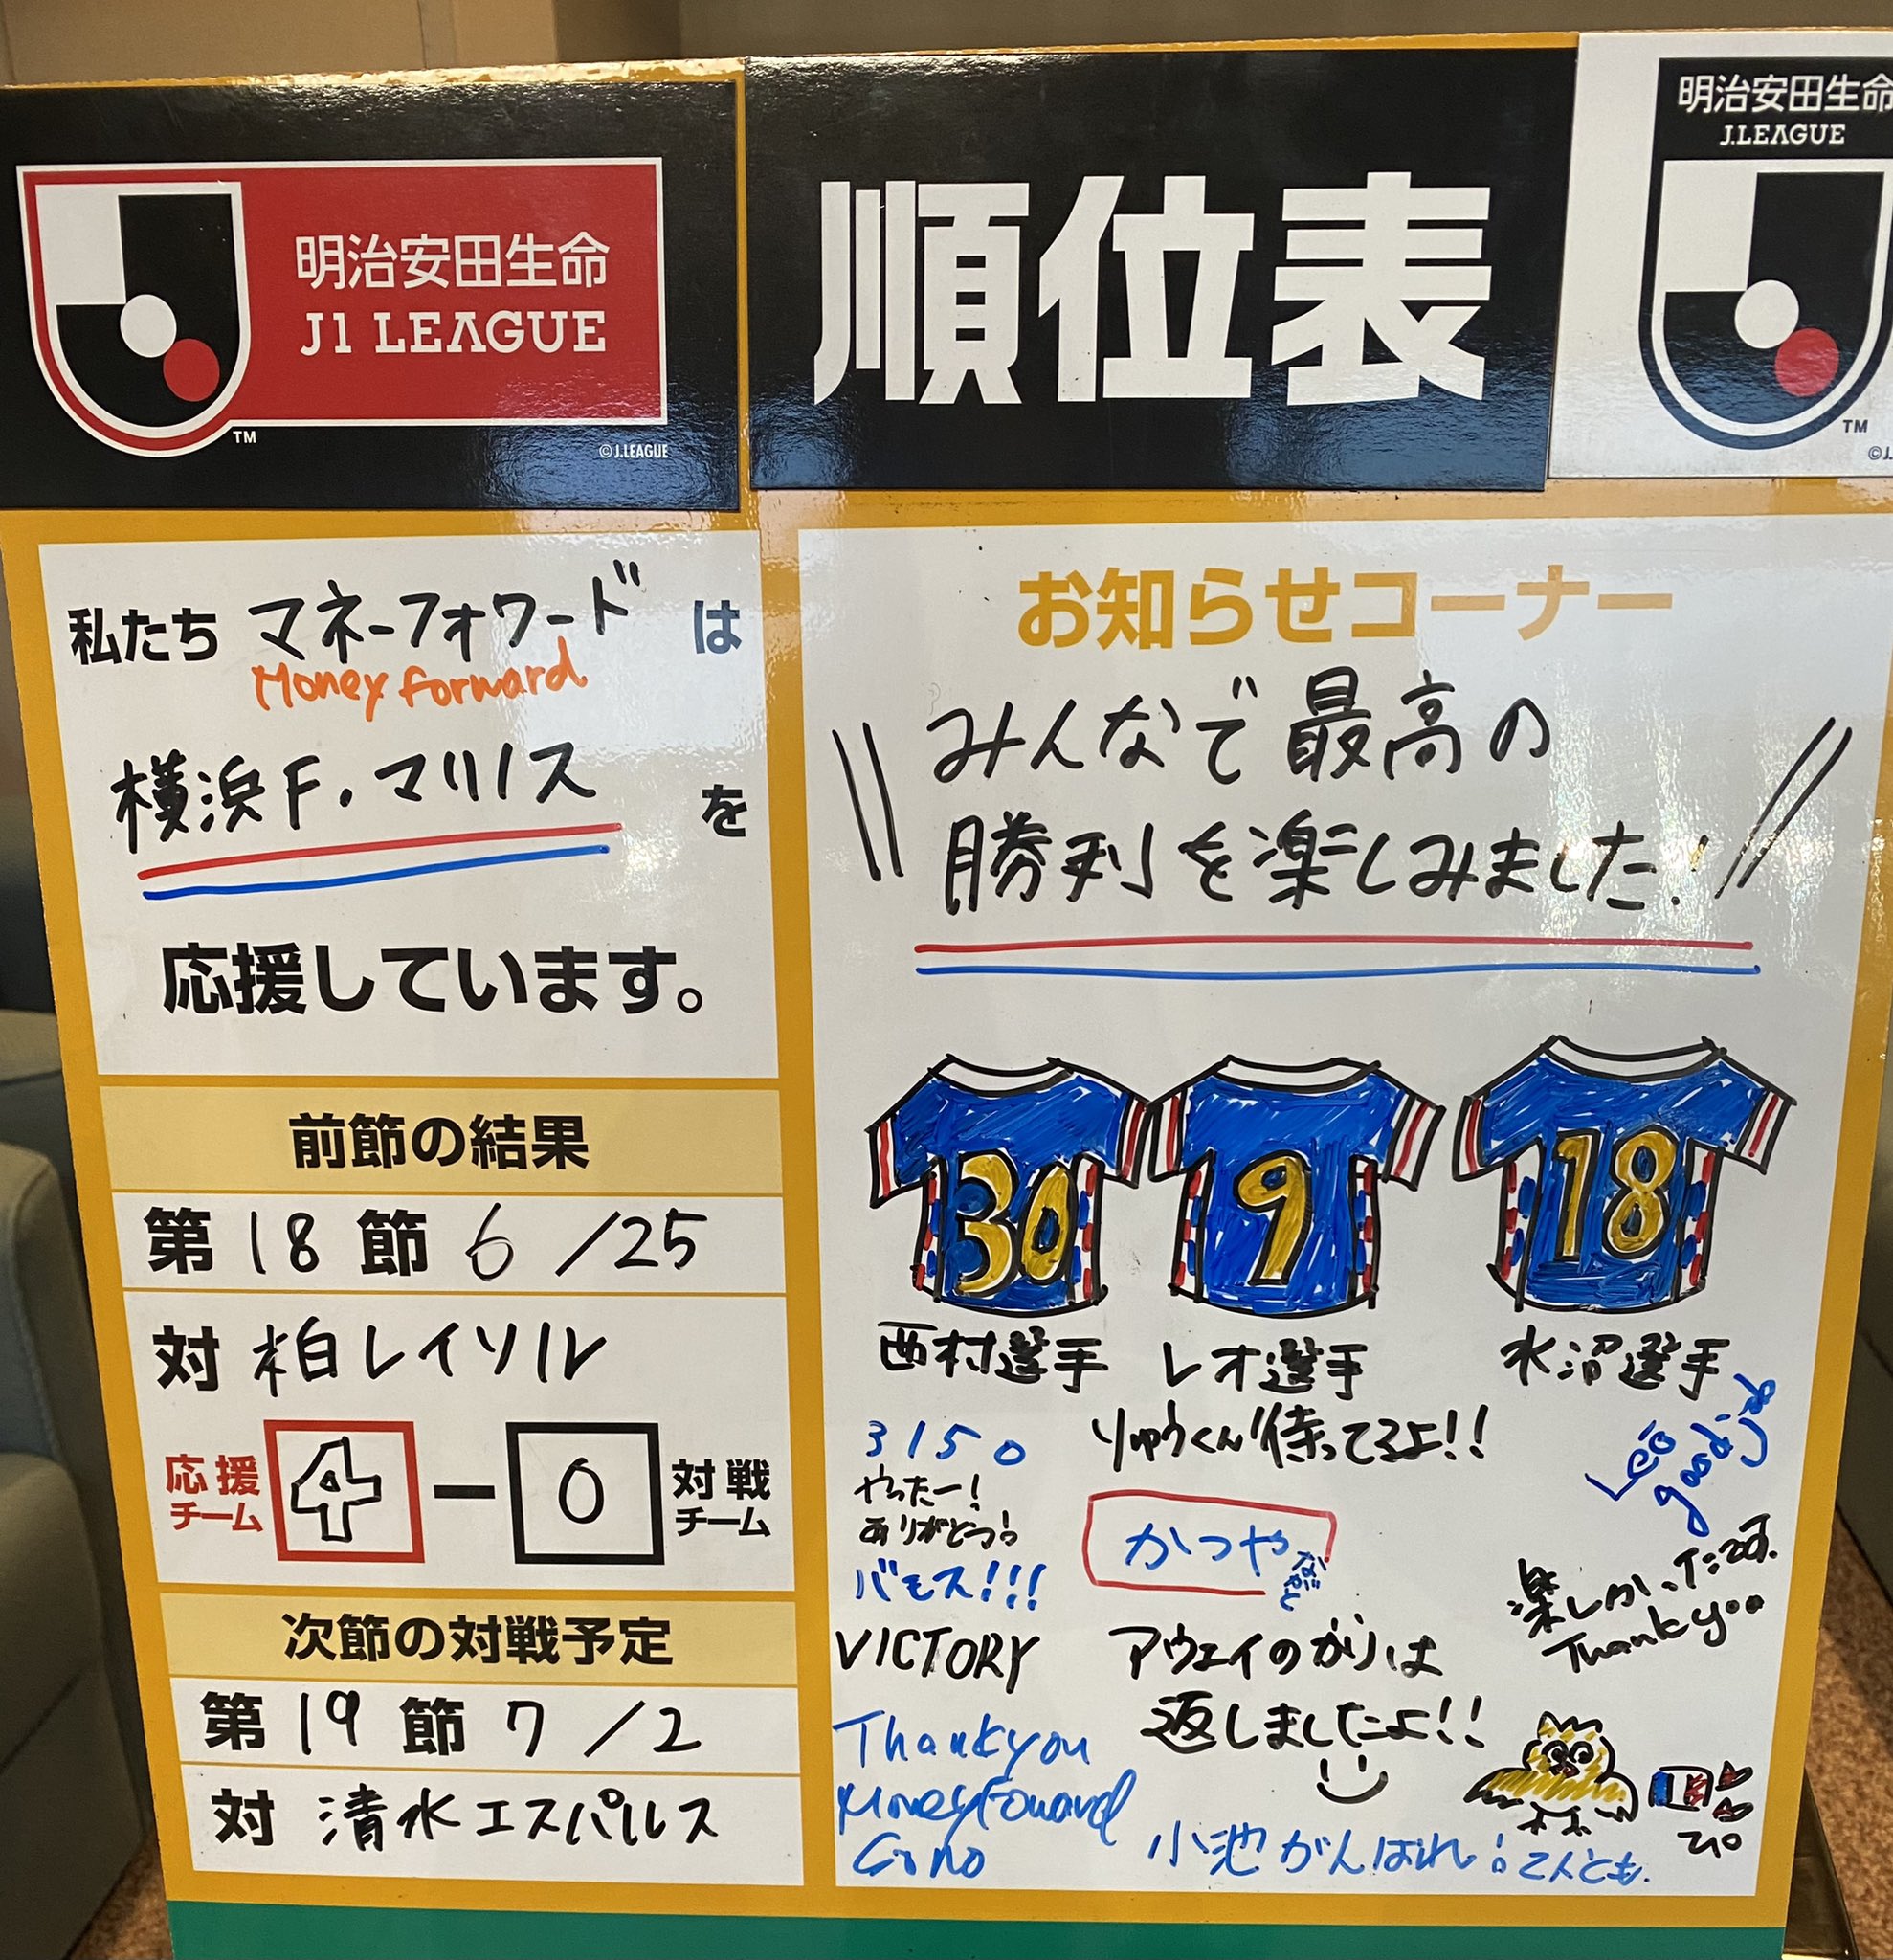 明治安田生命
J1 LEAGUE
TM
©J.LEAGUE
順位表
明治安田生命
J.LEAGUE
TM
私たち マネーフォワード は
Money forward
横浜F・マリノス を
応援しています。
前節の結果
第 18 節 6 /25
対 柏レイソル
応援チーム 4 ー 0 対戦チーム
次節の対戦予定
第 19 節 7 /2
対 清水エスパルス
お知らせコーナー
\\ みんなで最高の
勝利を楽しみました! //
30 9 18
西村選手 レオ選手 水沼選手
りゅうくん待ってるよ!!
Leo
good job
3150
やったー!
ありがとう!
バモス!!!
VICTORY
かつや
ながと
楽しかったです.
Thank you
アウェイのかりは
返しましたよ!!
Thankyou
Moneyforward
小池がんばれ! 2人とも.